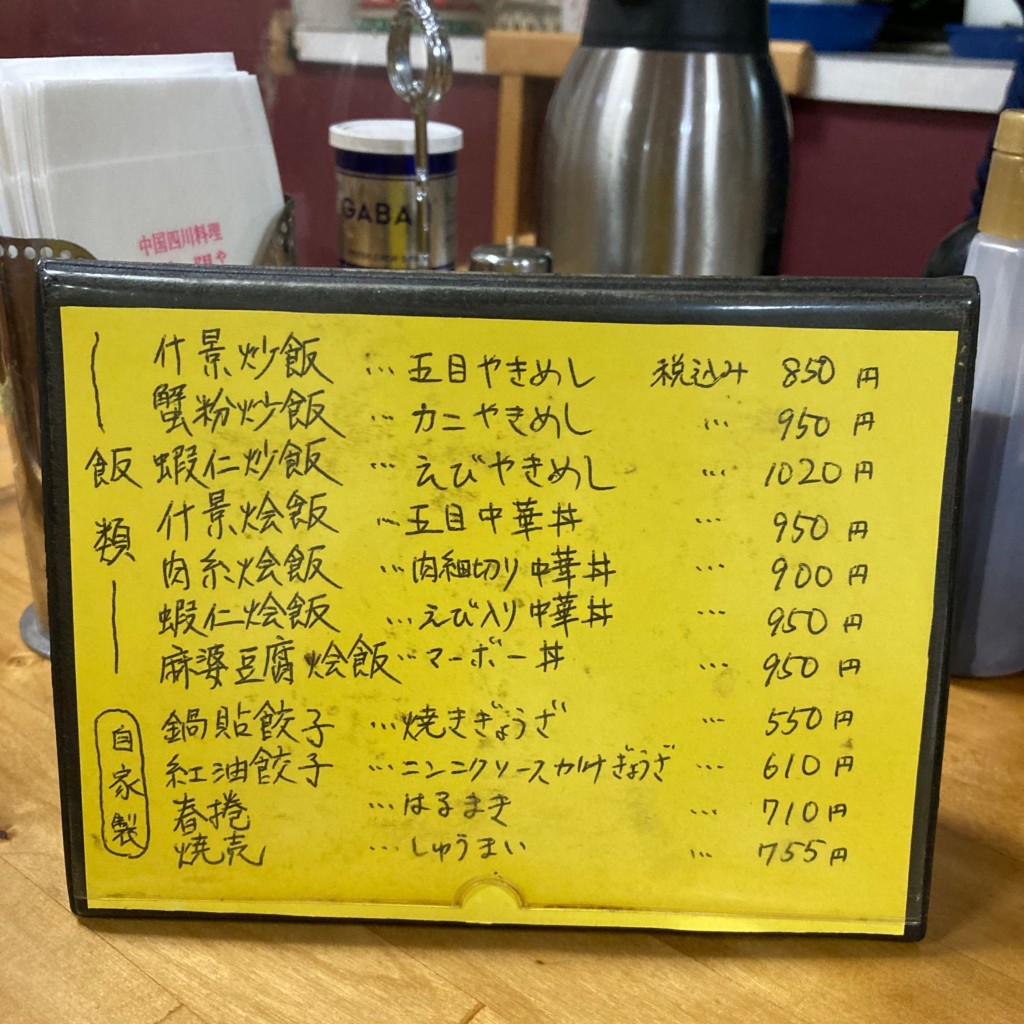 GABA
中国四川料理
飯類
什景炒飯 … 五目やきめし 税込み 850円
蟹粉炒飯 … カニやきめし … 950円
蝦仁炒飯 … えびやきめし … 1020円
什景烩飯 … 五目中華丼 … 950円
肉糸烩飯 … 肉細切り中華丼 … 900円
蝦仁烩飯 … えび入り中華丼 … 950円
麻婆豆腐烩飯 … マーボー丼 … 950円
自家製
鍋貼餃子 … 焼きぎょうざ … 550円
紅油餃子 … ニンニクソースかけぎょうざ … 610円
春捲 … はるまき … 710円
焼売 … しゅうまい … 755円